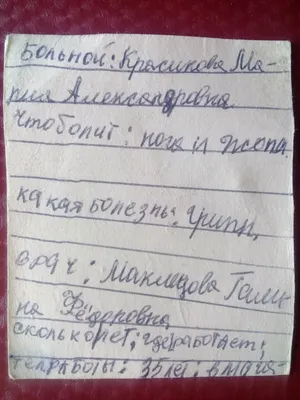 Больной: Красикова Ма-
рия Александровна
Что болит: нога и жопа.
какая болезнь: Грипп,
врач: Маклецова Гали-
на Фёдоровна
сколько лет; где работает;
тел работы: 35 лет; в мага-